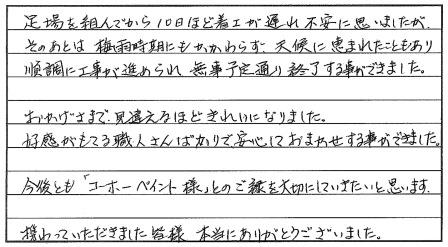 足場を組んでから10日ほど着工が遅れ不安に思いましたが、
そのあとは梅雨時期にもかかわらず天候に恵まれたこともあり
順調に工事が進められ無事予定通り終了する事ができました。
おかげさまで見違えるほどきれいになりました。
好感がもてる職人さんばかりで安心しておまかせする事ができました。
今後とも「コーホーペイント様」とのご縁を大切にしていきたいと思います。
携わっていただきました皆様 本当にありがとうございました。